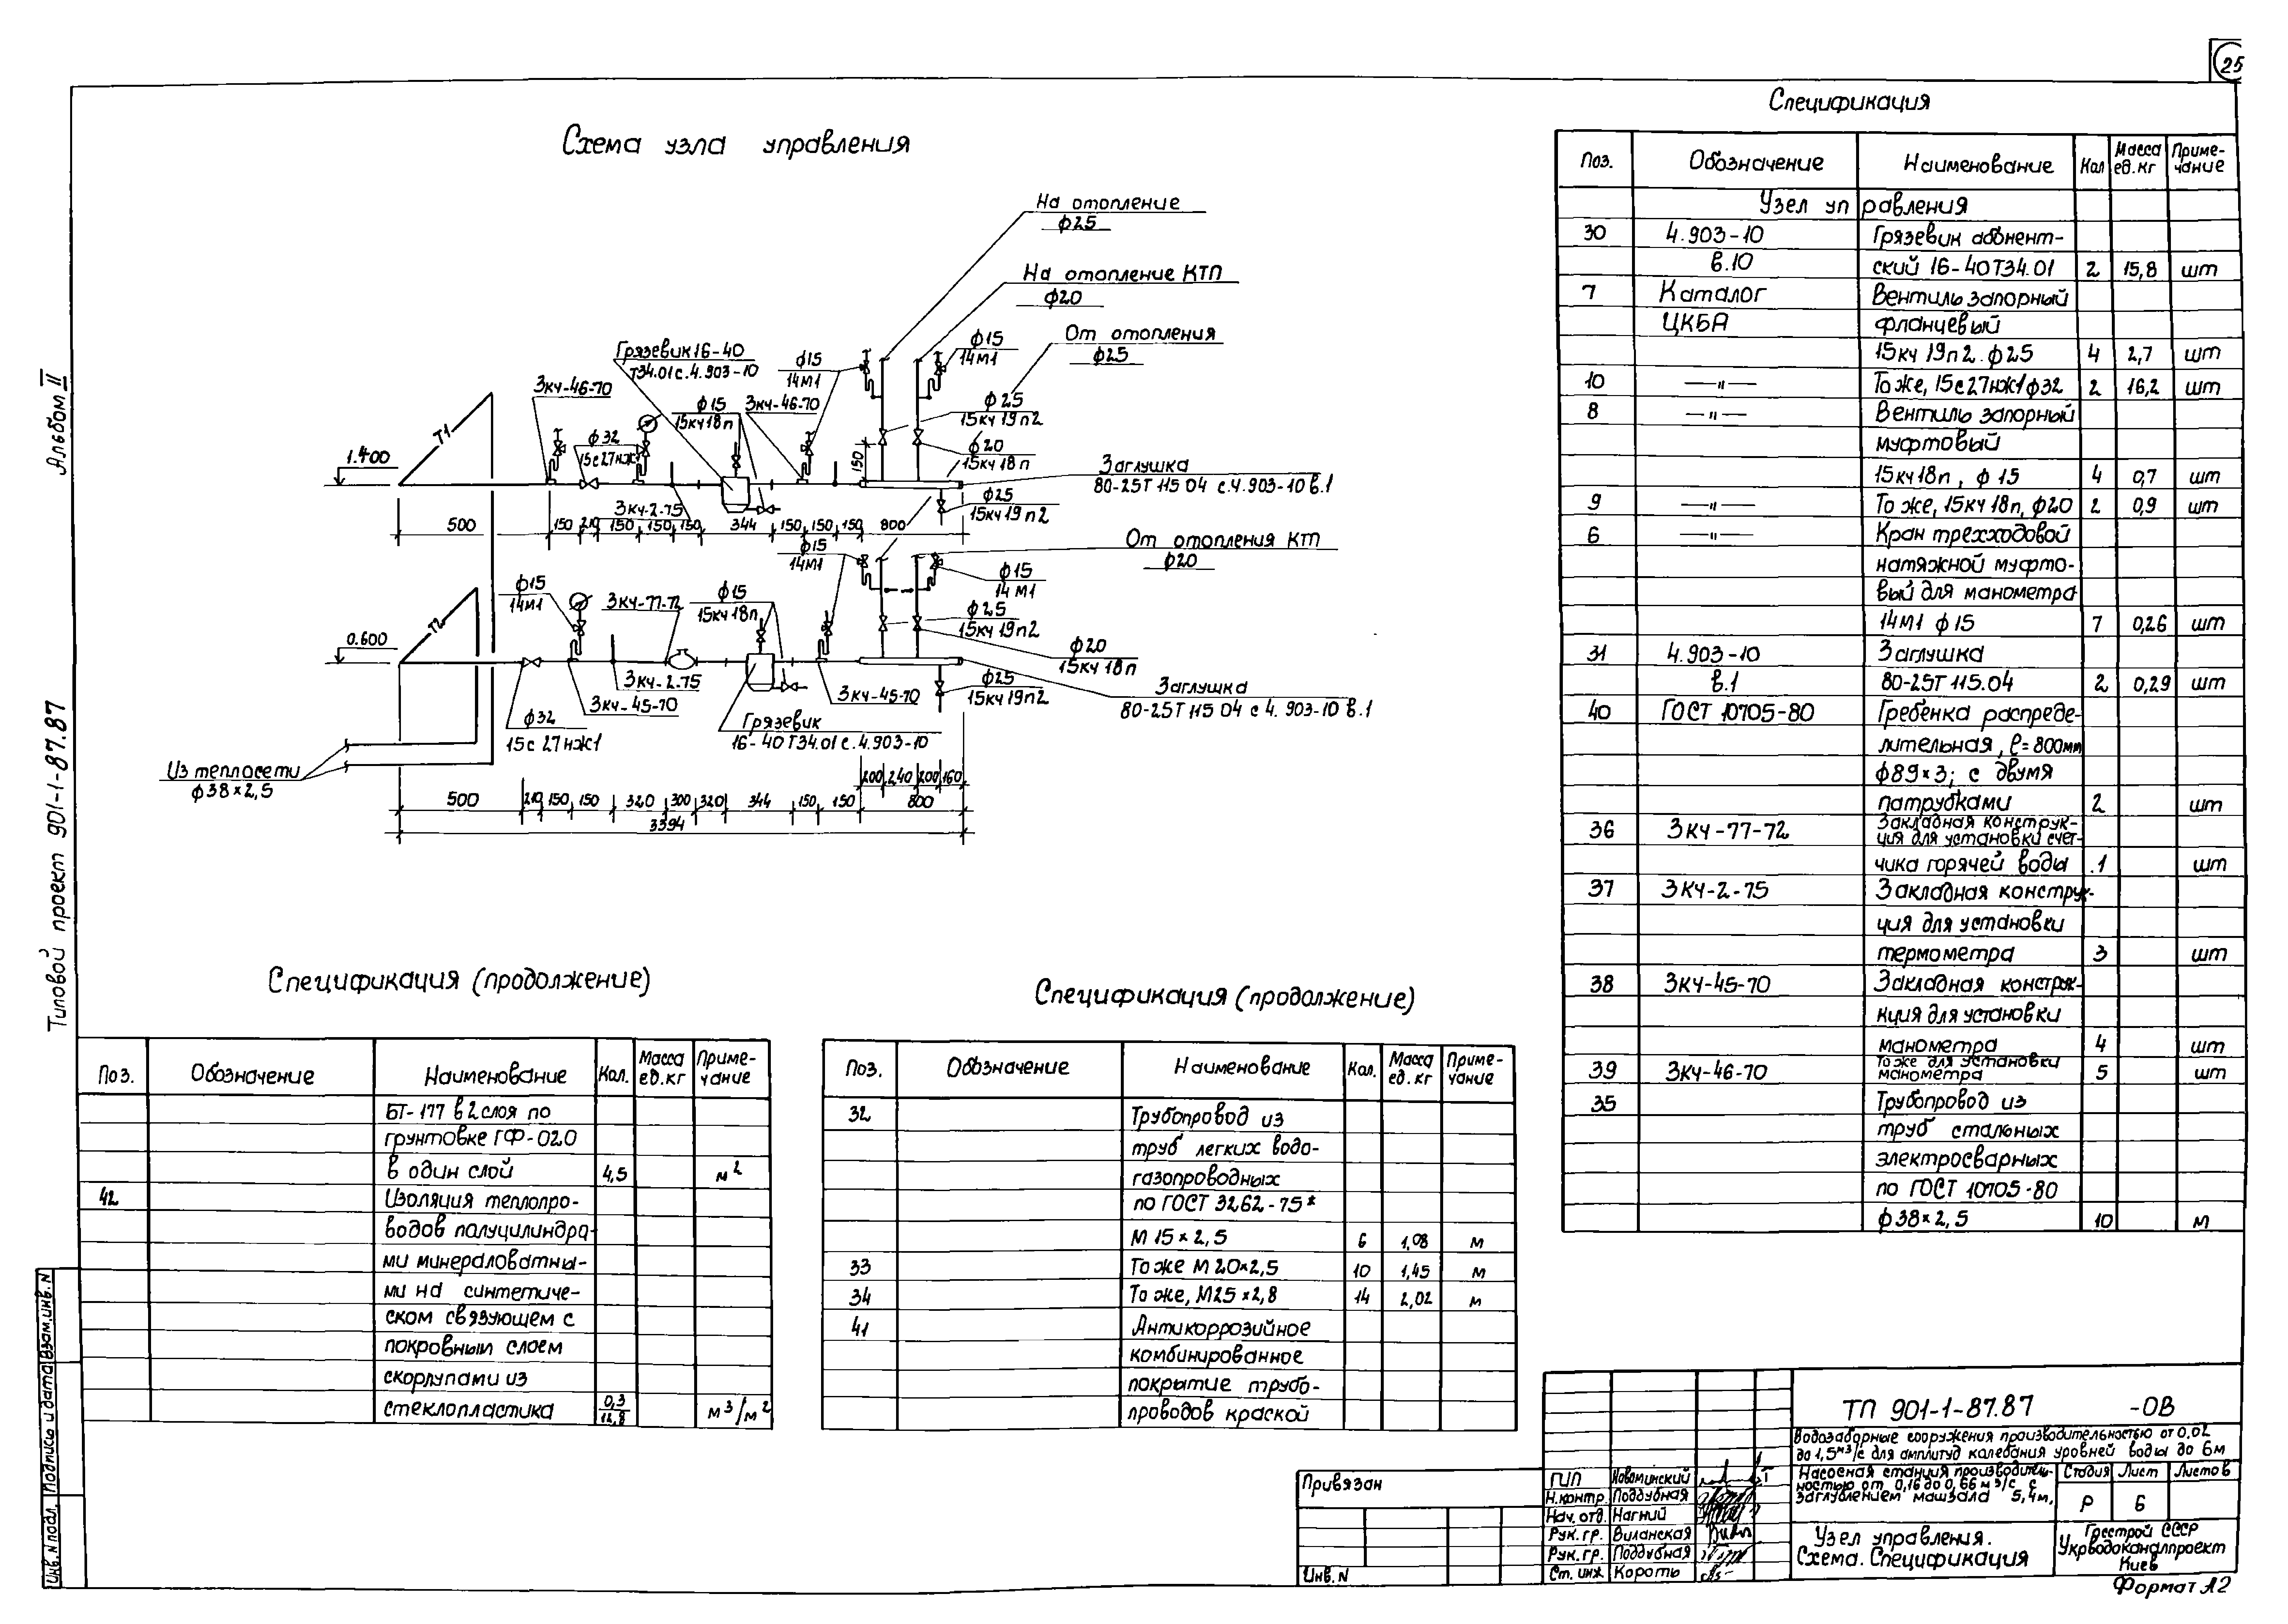 25
Альбом II
Типовой проект 901-1-87.87
Схема узла управления
На отопление
ф25
На отопление КТП
ф20
От отопления
ф25
ф15
14М1
Грязевик 16-40
Т34.01 с.4.903-10
ф15
14М1
3кч-46-70
ф15
15кч18п
3кч-46-70
ф25
15кч19п2
Т1
ф32
15с27нж1
ф20
15кч18п
1.400
150
Заглушка
80-25Т 115 04 с.4.903-10 в.1
3кч-2-75
ф25
15кч19п2
500 150 210 150 150 150 344 150 150 150 800
От отопления КТП
ф20
ф15
14М1
ф15
14М1
ф15
14М1
3кч-77-72
ф15
15кч18п
ф25
15кч19п2
Т2
0.600
ф20
15кч18п
3кч-2-75
3кч-45-70
3кч-45-70
ф25
15кч19п2
Заглушка
80-25Т 115 04 с 4.903-10 в.1
ф32
15с27нж1
Грязевик
16-40Т34.01 с.4.903-10
Из теплосети
ф38×2,5
200 240 200 160
500 210 150 150 320 300 320 344 150 150 800
3394
Спецификация
Поз. Обозначение Наименование Кол Масса ед.кг Примечание
Узел управления
30 4.903-10 Грязевик абонент-
в.10 ский 16-40Т34.01 2 15,8 шт
7 Каталог Вентиль запорный
ЦКБА фланцевый
15кч19п2 ф25 4 2,7 шт
10 —"— То же, 15с27нж1 ф32 2 16,2 шт
8 —"— Вентиль запорный
муфтовый
15кч18п, ф15 4 0,7 шт
9 —"— То же, 15кч18п, ф20 2 0,9 шт
6 —"— Кран трехходовой
натяжной муфто-
вый для манометра
14М1 ф15 7 0,26 шт
31 4.903-10 Заглушка
в.1 80-25Т 115.04 2 0,29 шт
40 ГОСТ 10705-80 Гребенка распреде-
лительная, ℓ=800мм
ф89×3; с двумя
патрубками 2 шт
36 3кч-77-72 Закладная конструк-
ция для установки счет-
чика горячей воды 1 шт
37 3кч-2-75 Закладная конструк-
ция для установки
термометра 3 шт
38 3кч-45-70 Закладная констру-
кция для установки
манометра 4 шт
39 3кч-46-70 То же для установки
манометра 5 шт
35 Трубопровод из
труб стальных
электросварных
по ГОСТ 10705-80
ф38×2,5 10 м
Спецификация (продолжение)
Поз. Обозначение Наименование Кол. Масса ед.кг Приме-чание
БТ-177 в 2 слоя по
грунтовке ГФ-020
в один слой 4,5 м²
42 Изоляция теплопро-
водов полуцилиндра-
ми минераловатны-
ми на синтетиче-
ском связующем с
покровным слоем
скорлупами из
стеклопластика 0,3/12,8 м³/м²
Спецификация (продолжение)
Поз. Обозначение Наименование Кол. Масса ед.кг Приме-чание
32 Трубопровод из
труб легких водо-
газопроводных
по ГОСТ 3262-75*
М 15×2,5 6 1,08 м
33 То же М 20×2,5 10 1,45 м
34 То же, М25×2,8 14 2,02 м
41 Антикоррозийное
комбинированное
покрытие трубо-
проводов краской
Инв.N подл. Подпись и дата Взам.инв.N
Привязан
Инв.N
ТП 901-1-87.87 -ОВ
Водозаборные сооружения производительностью от 0,02
до 1,5 м³/с для амплитуд колебания уровней воды до 6м
ГИП Новоминский
Н.контр. Поддубная
Нач.отд. Нагний
Рук.гр. Виланская
Рук.гр. Поддубная
Ст. инж Короть
Насосная станция производитель-
ностью от 0,16 до 0,66 м³/с с
заглублением машзала 5,4м.
Стадия Лист Листов
Р 6
Узел управления.
Схема. Спецификация
Госстрой СССР
Укрводоканалпроект
Киев
Формат А2